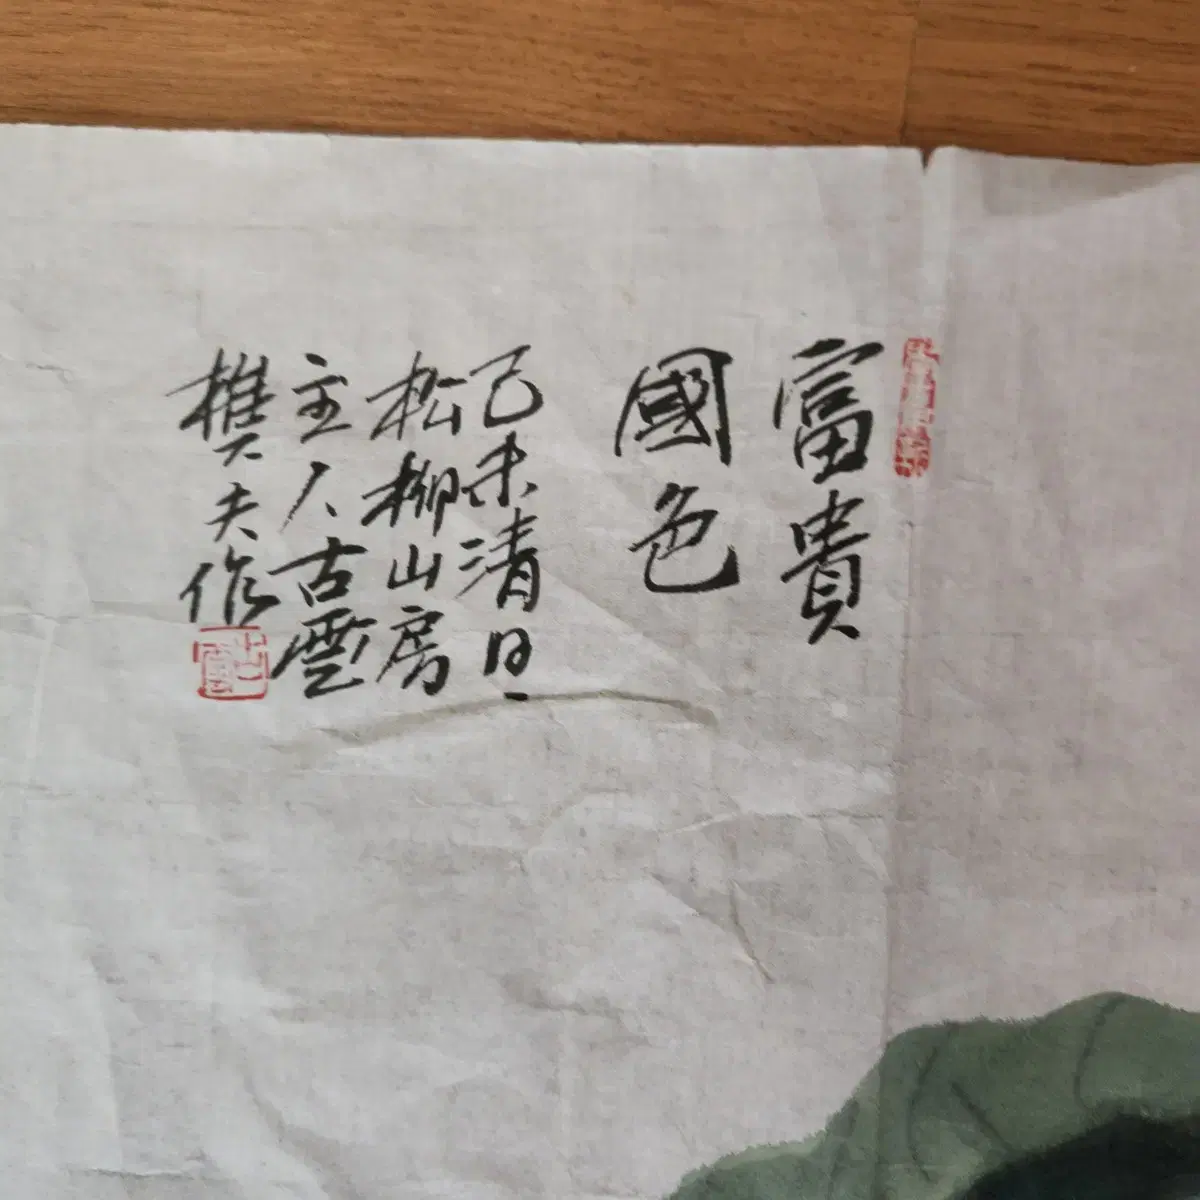 富貴
國色
己未清日
松柳山房
主人古雲
樵夫作